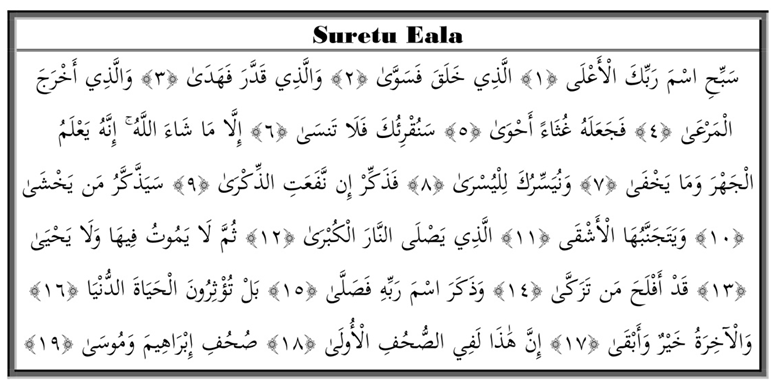 Suretu Eala
سَبِّحِ اسْمَ رَبِّكَ الْأَعْلَى ﴿١﴾ الَّذِي خَلَقَ فَسَوَّىٰ ﴿٢﴾ وَالَّذِي قَدَّرَ فَهَدَىٰ ﴿٣﴾ وَالَّذِي أَخْرَجَ
الْمَرْعَىٰ ﴿٤﴾ فَجَعَلَهُ غُثَاءً أَحْوَىٰ ﴿٥﴾ سَنُقْرِئُكَ فَلَا تَنسَىٰ ﴿٦﴾ إِلَّا مَا شَاءَ اللَّهُ ۚ إِنَّهُ يَعْلَمُ
الْجَهْرَ وَمَا يَخْفَىٰ ﴿٧﴾ وَنُيَسِّرُكَ لِلْيُسْرَىٰ ﴿٨﴾ فَذَكِّرْ إِن نَّفَعَتِ الذِّكْرَىٰ ﴿٩﴾ سَيَذَّكَّرُ مَن يَخْشَىٰ
﴿١٠﴾ وَيَتَجَنَّبُهَا الْأَشْقَى ﴿١١﴾ الَّذِي يَصْلَى النَّارَ الْكُبْرَىٰ ﴿١٢﴾ ثُمَّ لَا يَمُوتُ فِيهَا وَلَا يَحْيَىٰ
﴿١٣﴾ قَدْ أَفْلَحَ مَن تَزَكَّىٰ ﴿١٤﴾ وَذَكَرَ اسْمَ رَبِّهِ فَصَلَّىٰ ﴿١٥﴾ بَلْ تُؤْثِرُونَ الْحَيَاةَ الدُّنْيَا ﴿١٦﴾
وَالْآخِرَةُ خَيْرٌ وَأَبْقَىٰ ﴿١٧﴾ إِنَّ هَٰذَا لَفِي الصُّحُفِ الْأُولَىٰ ﴿١٨﴾ صُحُفِ إِبْرَاهِيمَ وَمُوسَىٰ ﴿١٩﴾